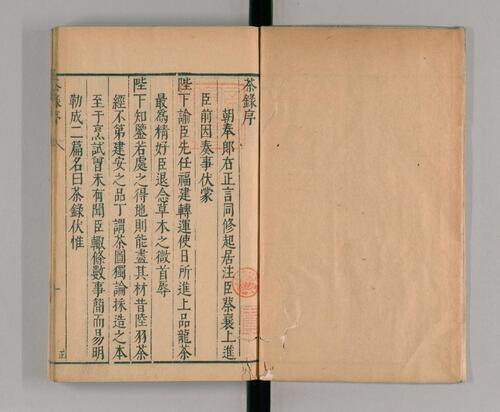 茶錄序
朝奉郎右正言同修起居注臣蔡襄上進
臣前因奏事伏蒙
陛下諭臣先任福建轉運使日所進上品龍茶
最為精好臣退念草木之微首辱
陛下知鑒若處之得地則能盡其材昔陸羽茶
經不第建安之品丁謂茶圖獨論採造之本
至于烹試曾未有聞臣輙條數事簡而易明
勒成二篇名曰茶錄伏惟
茶錄序
一